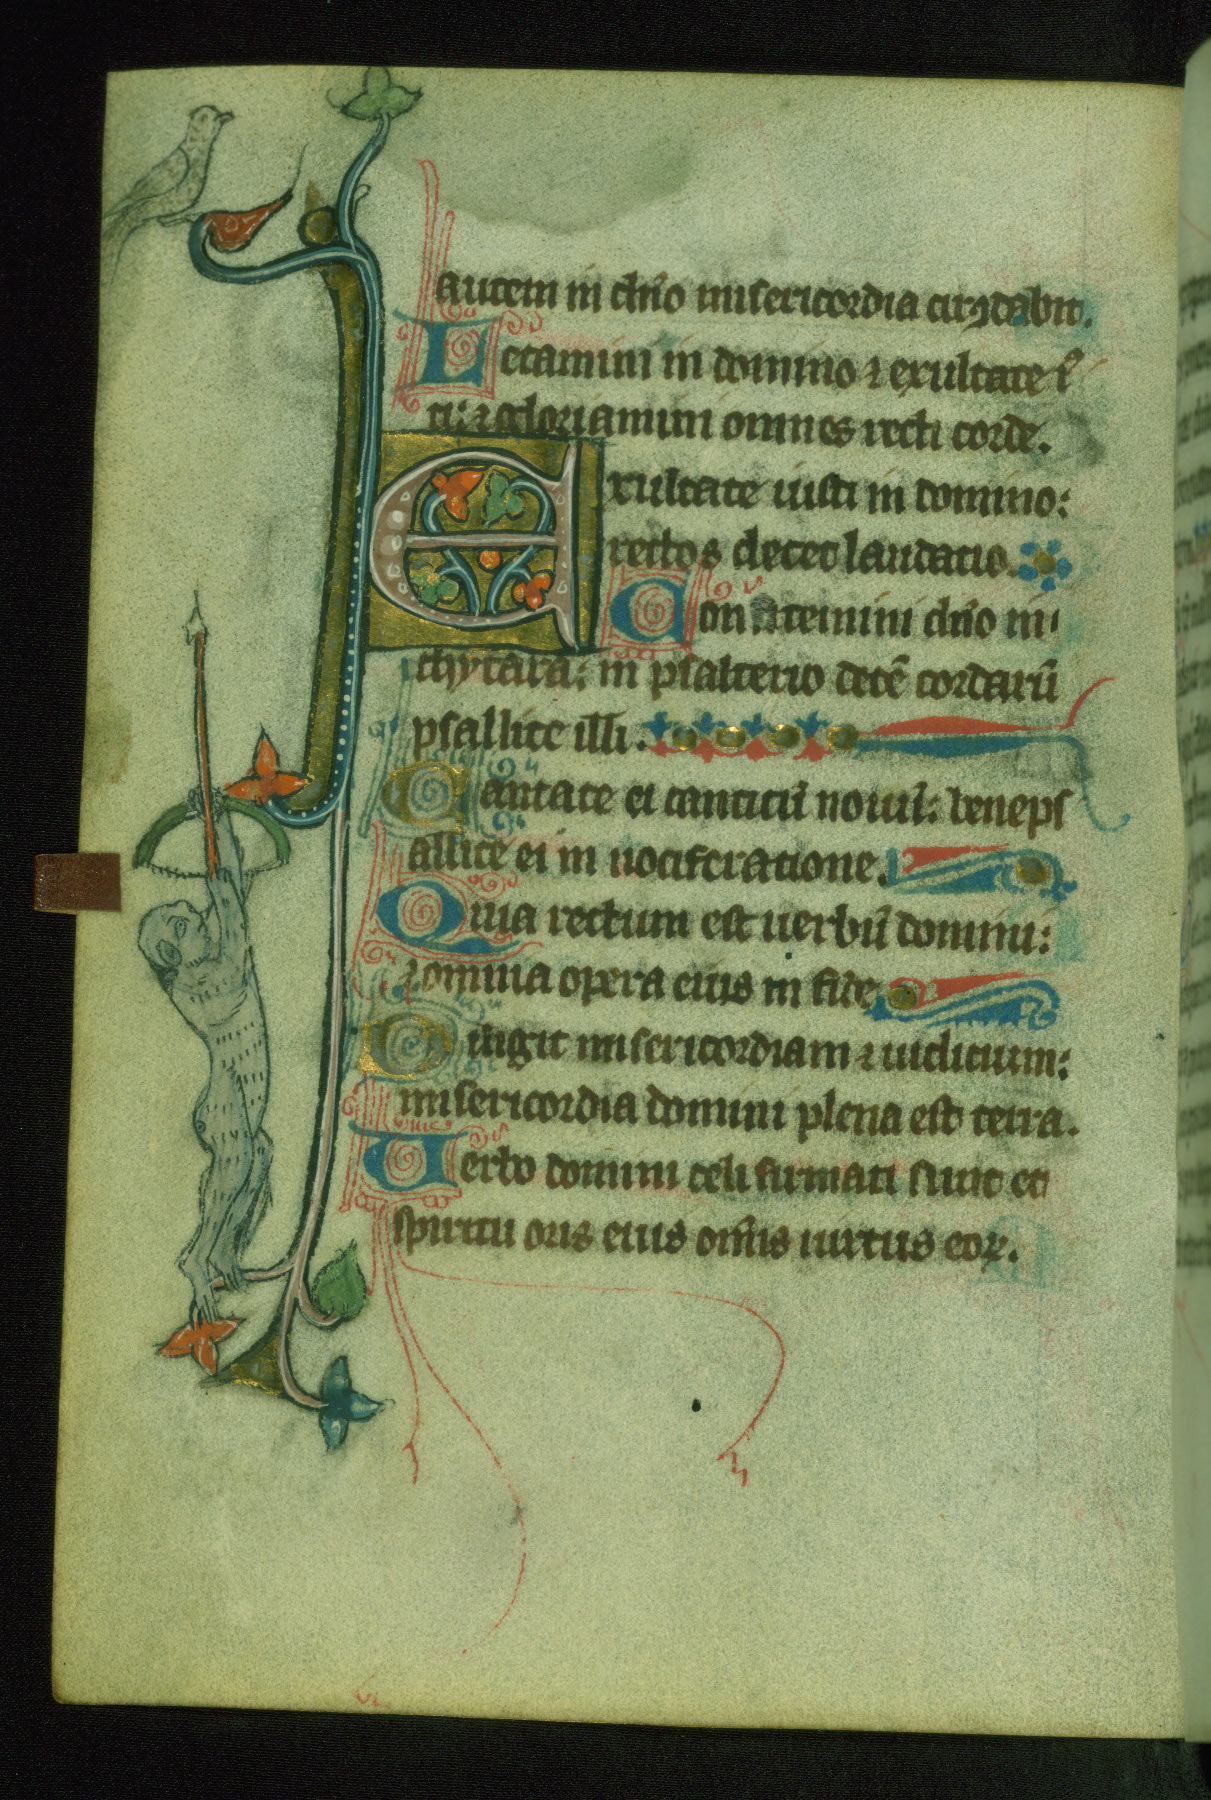 autem in dn̄o misericordia circ̄dabit.
Letamini in domino ⁊ exultate i
ti: ⁊ gloriamini omnes recti corde.
Exultate iusti in domino:
rectos decet laudatio.
Confitemini dn̄o in
chytara: in psalterio decē cordarū
psallite illi.
Cantate ei canticū nouū: beneps
allite ei in uociferatione.
Quia rectum est uerbū domini:
⁊ omnia opera eius in fide
Diligit misericordiam ⁊ iudicium:
misericordia domini plena est terra.
Uerbo domini celi firmati sunt et
spiritu oris eius om̄is uirtus eoꝝ.